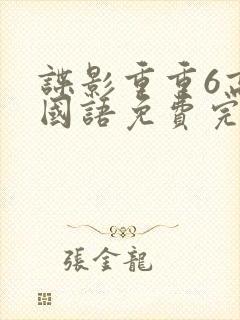 諜影重重6高
國語免費完
張金龍